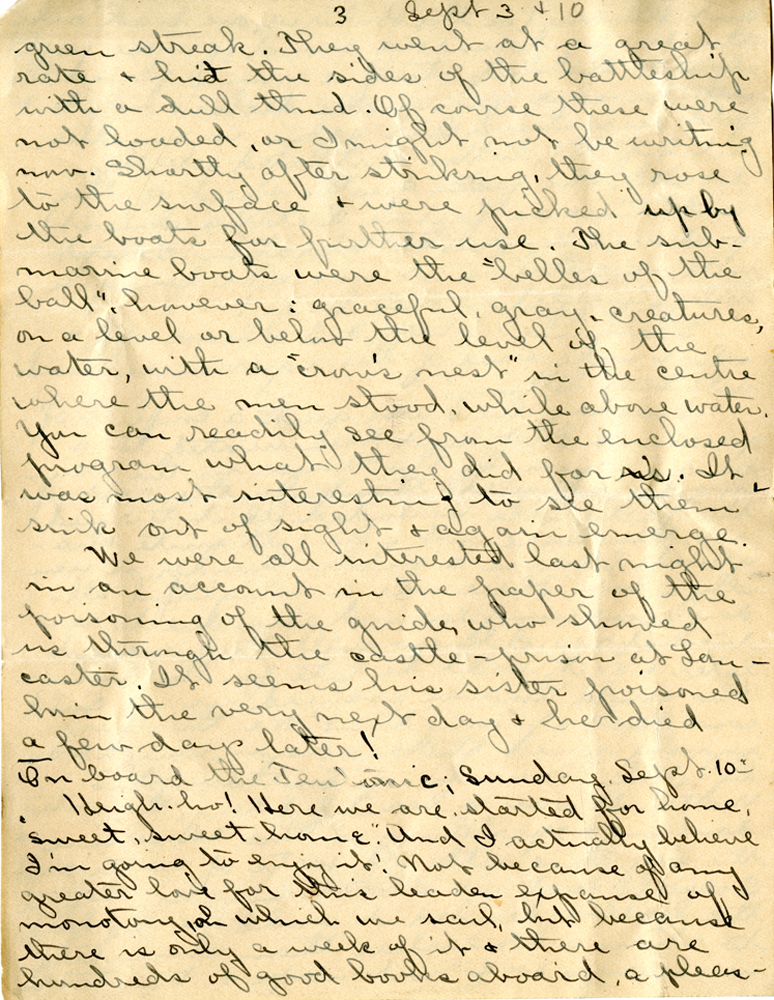 3 Sept 3 + 10
green streak. They went at a great
rate + hit the sides of the battleship
with a dull thud. Of course these were
not loaded, or I might not be writing
now. Shortly after striking, they rose
to the surface + were picked up by
the boats for further use. The sub-
marine boats were the "belles of the
ball", however: graceful, gray, creatures,
on a level or below the level of the
water, with a "crow's nest" in the centre
where the men stood, while above water.
You can readily see from the enclosed
program what they did for us. It
was most interesting to see them
sink out of sight + again emerge.
We were all interested last night
in an account in the paper of the
poisoning of the guide, who showed
us through the castle-prison at Lan-
caster. It seems his sister poisoned
him the very next day + he died
a few days later!
On board the Teutonic; Sunday. Sept. 10-
Heigh-ho! Here we are, started for home,
"sweet, sweet, home". And I actually believe
I'm going to enjoy it! Not because of any
greater love for this leaden expanse of
monotony, on which we sail, but because
there is only a week of it + there are
hundreds of good books aboard, a pleas-